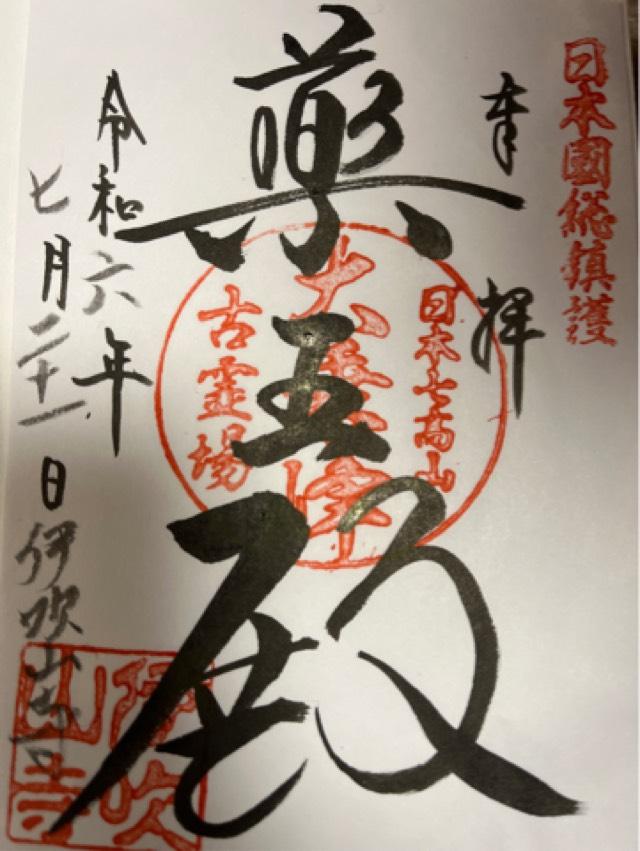 日本國総鎮護
奉拝
日本七高山
薬王殿
古霊場
令和六年
七月二十一日
伊吹山寺
伊吹
山寺